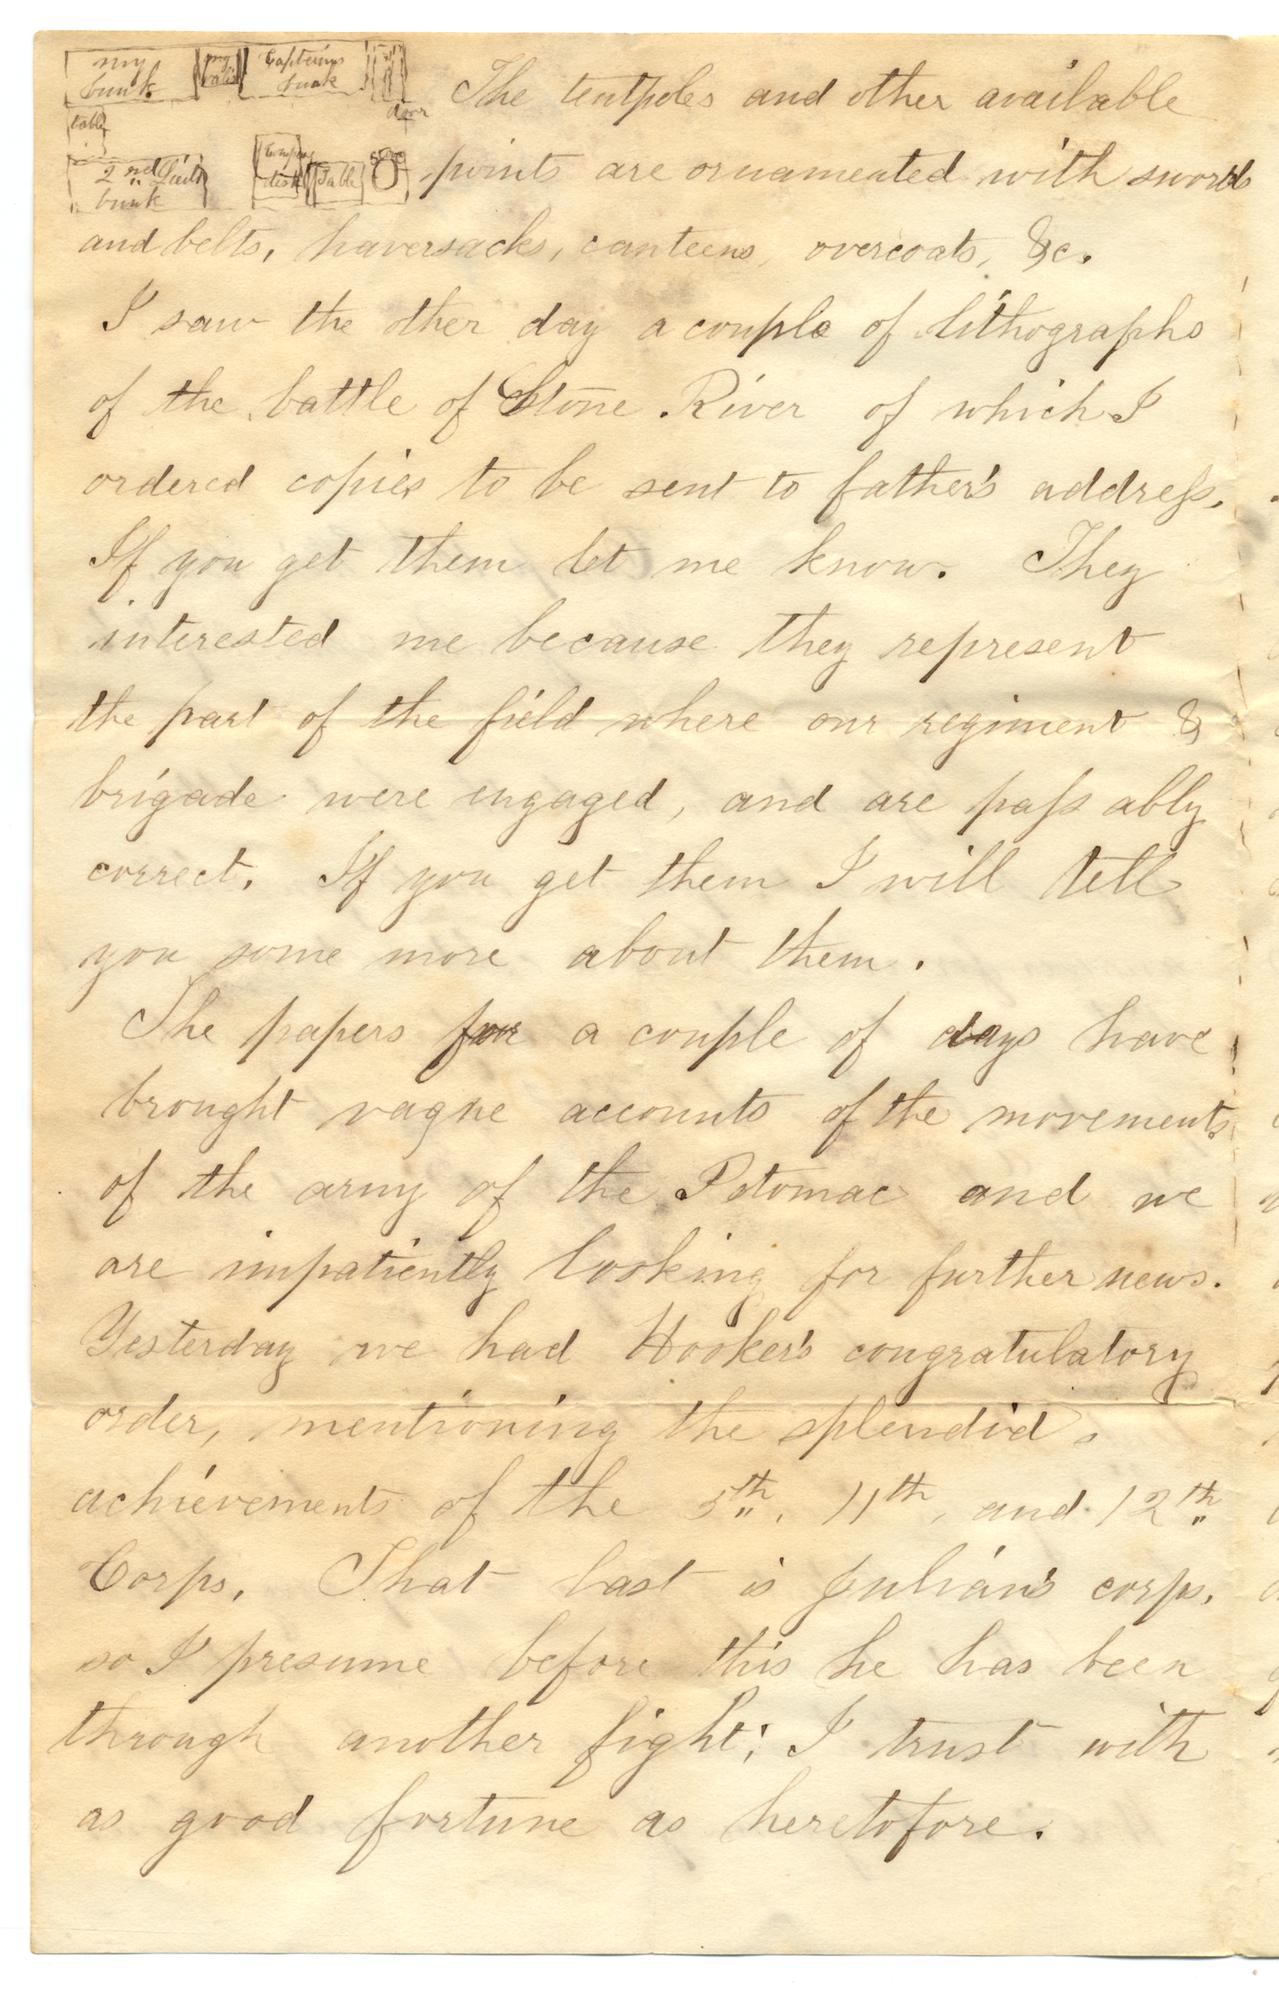 my
bunk
my
Captain's
bunk
door
table
2nd Lieut's
bunk
Company
desk
Table
stove
The tentpoles and other available
points are ornamented with swords
and belts, haversacks, canteens, overcoats, &c.
I saw the other day a couple of lithographs
of the battle of Stone River of which I
ordered copies to be sent to father's address.
If you get them let me know. They
interested me because they represent
the part of the field where our regiment &
brigade were engaged, and are passably
correct. If you get them I will tell
you some more about them.
The papers for a couple of days have
brought vague accounts of the movements
of the army of the Potomac and we
are impatiently looking for further news.
Yesterday we had Hooker's congratulatory
order, mentioning the splendid
achievements of the 5th, 11th, and 12th
Corps. That last is Julian's corps,
so I presume before this he has been
through another fight; I trust with
as good fortune as heretofore.